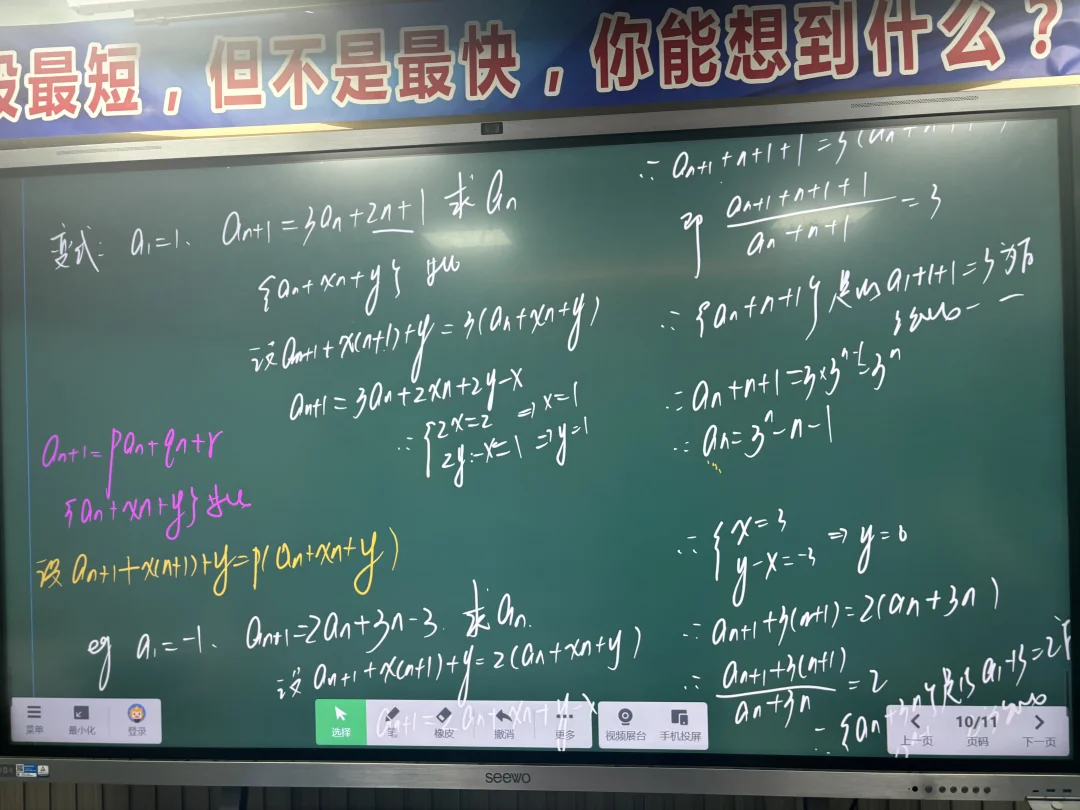 段最短，但不是最快，你能想到什么？
变式: a₁=1、 aₙ₊₁=3aₙ+2n+1 求aₙ
{aₙ+xn+y} 等比
设aₙ₊₁+x(n+1)+y=3(aₙ+xn+y)
aₙ₊₁=3aₙ+2xn+2y-x
∴ {2x=2 ⇒ x=1
2y-x=1 ⇒ y=1
aₙ₊₁=paₙ+qn+r
{aₙ+xn+y} 等比
设 aₙ₊₁+x(n+1)+y=p(aₙ+xn+y)
eg a₁=-1、 aₙ₊₁=2aₙ+3n-3. 求aₙ.
设 aₙ₊₁+x(n+1)+y=2(aₙ+xn+y)
aₙ₊₁=2aₙ+xn+y-x
∴ aₙ₊₁+n+1+1=3(aₙ+n
即 (aₙ₊₁+n+1+1)/(aₙ+n+1)=3
∴ {aₙ+n+1} 是以a₁+1+1=3为首
3为公比
∴ aₙ+n+1=3×3ⁿ⁻¹=3ⁿ
∴ aₙ=3ⁿ-n-1
∴ {x=3
y-x=-3 ⇒ y=0
∴ aₙ₊₁+3(n+1)=2(aₙ+3n)
∴ (aₙ₊₁+3(n+1))/(aₙ+3n)=2
∴ {aₙ+3n}是以a₁+3=2
菜单 最小化 登录
选择 笔 橡皮 撤消 更多
视频展台 手机投屏
上一页 10/11 页码 下一页
seewo